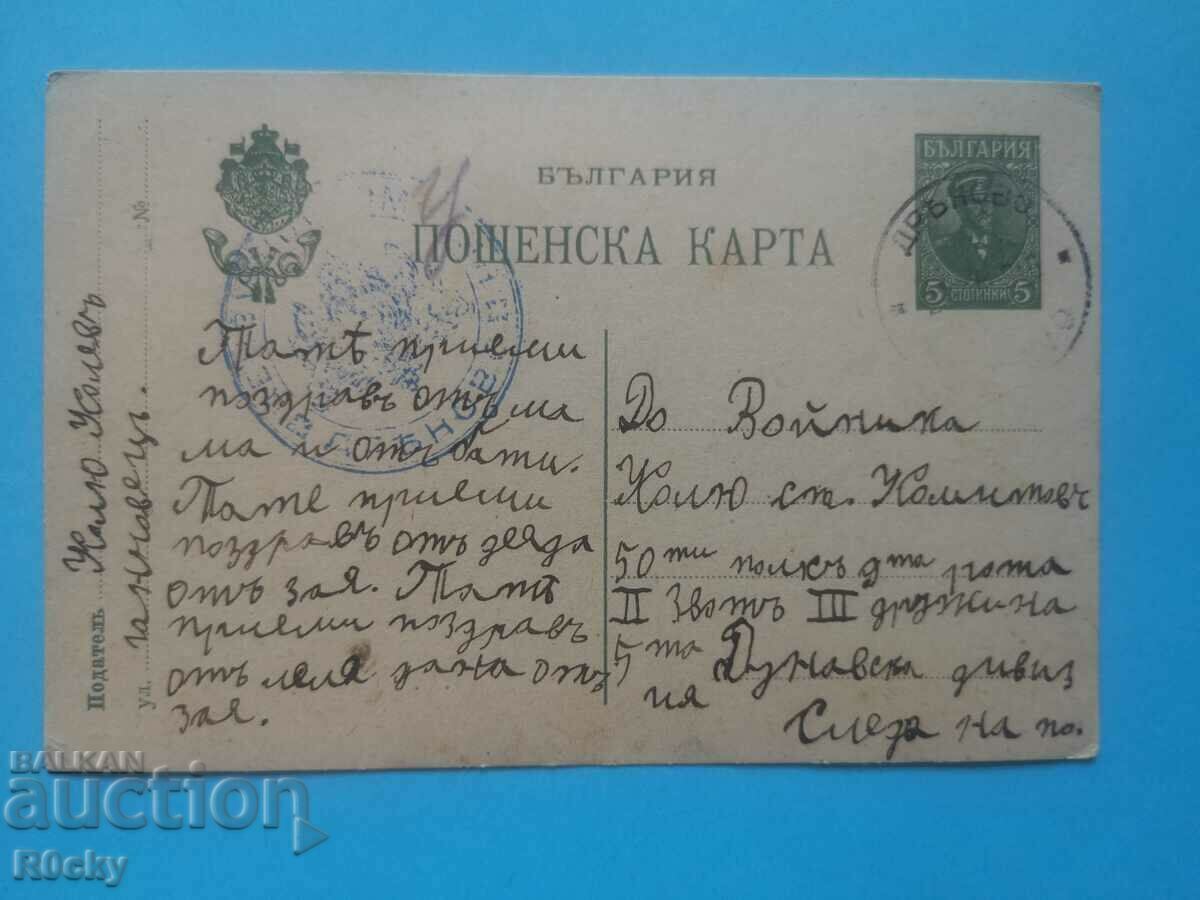 БЪЛГАРИЯ
ПОЩЕНСКА КАРТА
БЪЛГАРИЯ
5 СТОТИНКИ 5
ДРѢНОВО
Подателъ Колю Колевъ
ул. ганчовецъ. №
Татѣ приеми
поздравъ отъ ма
ма и отъ бати.
Тате приеми
поздравъ отъ деяда
отъ зая. Татѣ
приеми поздравъ
отъ леля дана отъ
зая.
До Войника
Колю ст. Комитовъ
50ти полкъ 9та рота
II Звотъ III дружина
5та Дунавска дивиз
ия
След на по.
BALKAN
auction
R0cky